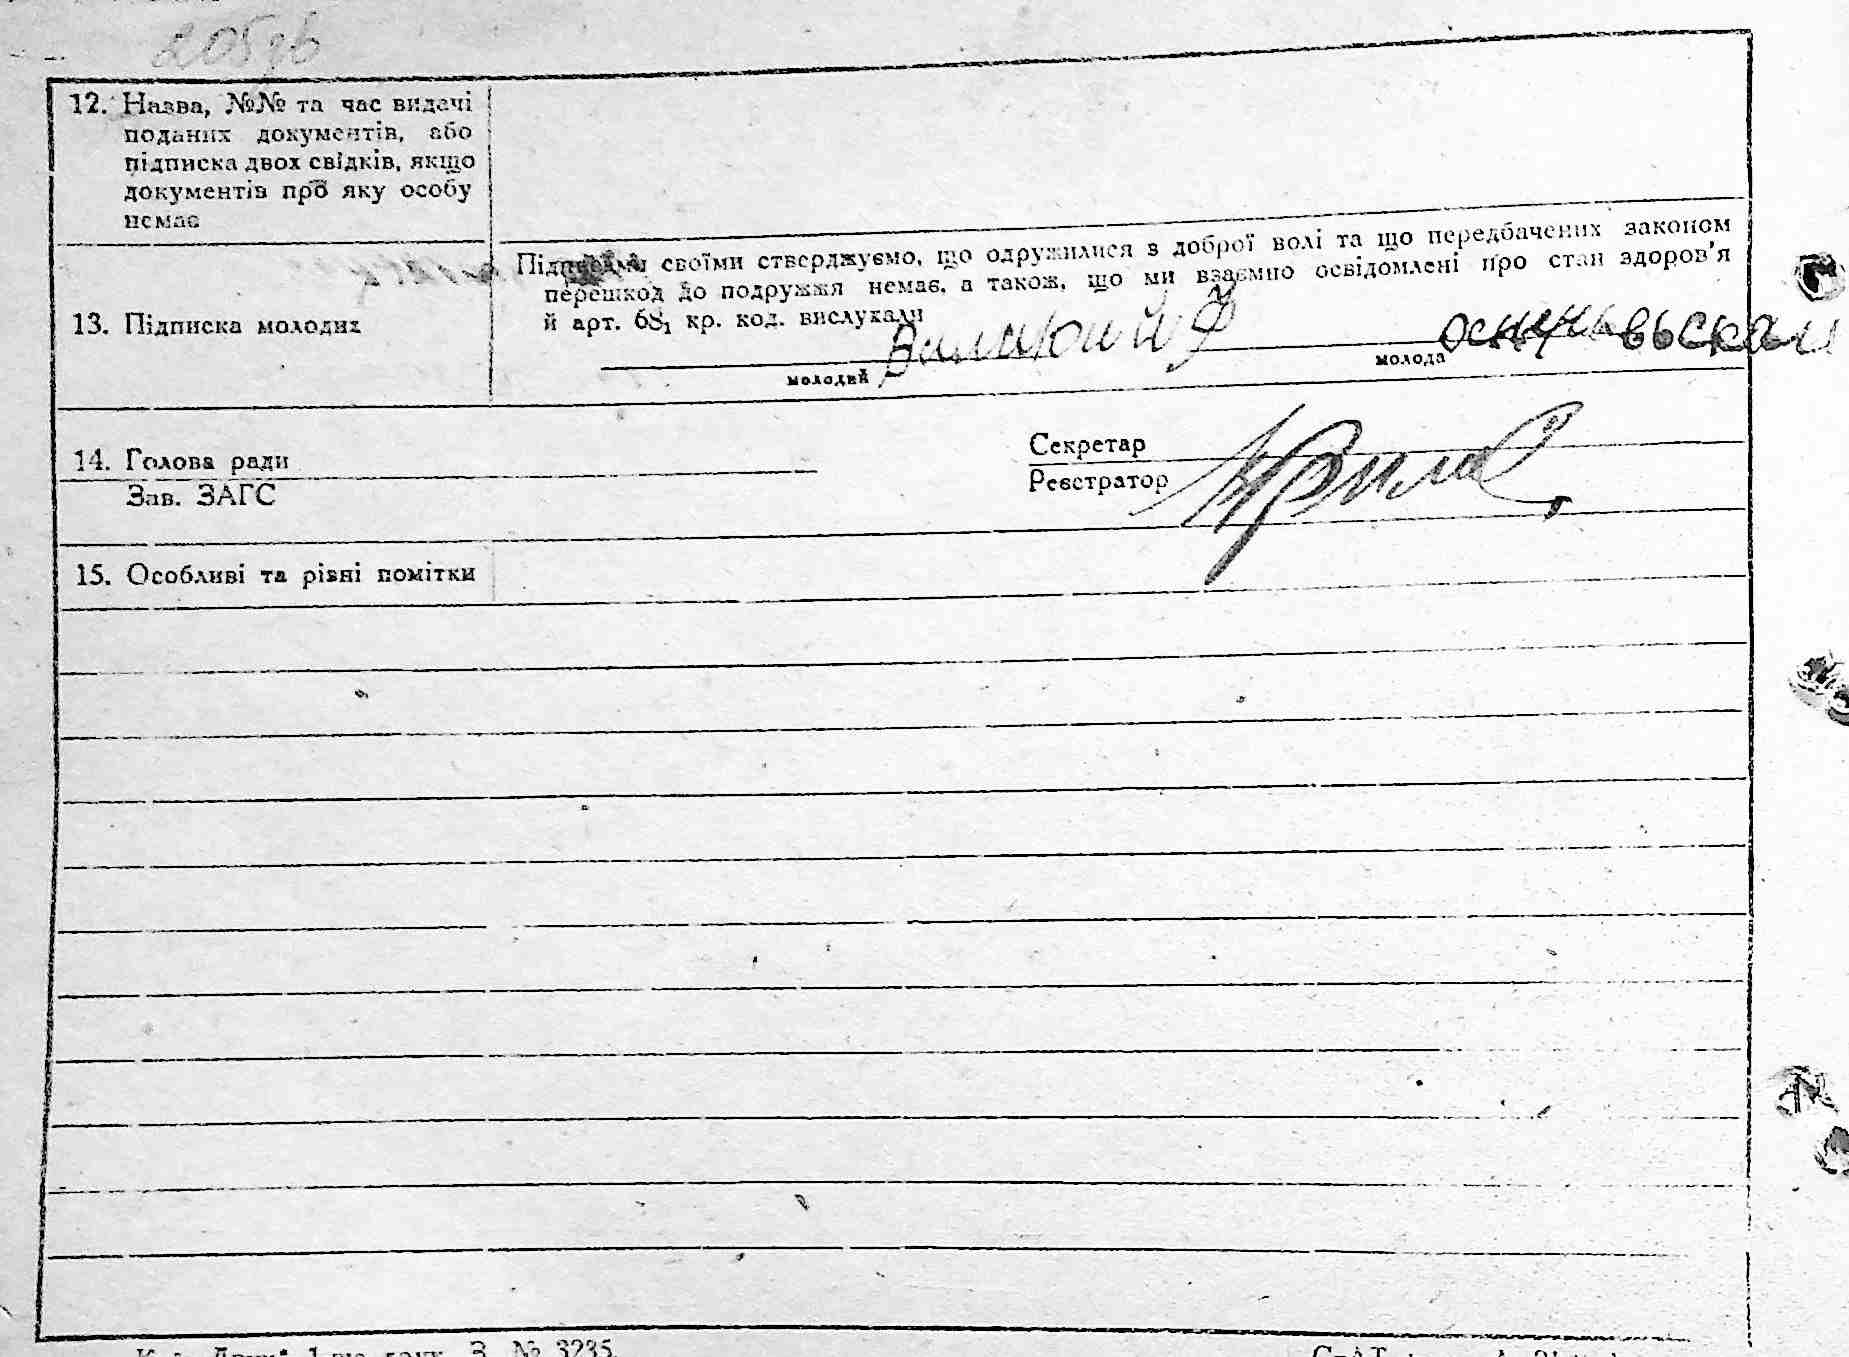 12. Назва, №№ та час видачі
поданих документів, або
підписка двох свідків, якщо
документів про яку особу
немає
Підписами своїми стверджуємо, що одружилися з доброї волі та що передбачених законом
перешкод до подружжя немає, а також, що ми взаємно освідомлені про стан здоров'я
й арт. 68₁ кр. код. вислухали
13. Підписка молодих
молодий
молода
14. Голова ради
Зав. ЗАГС
Секретар
Реєстратор
15. Особливі та різні помітки
З. № 3235.